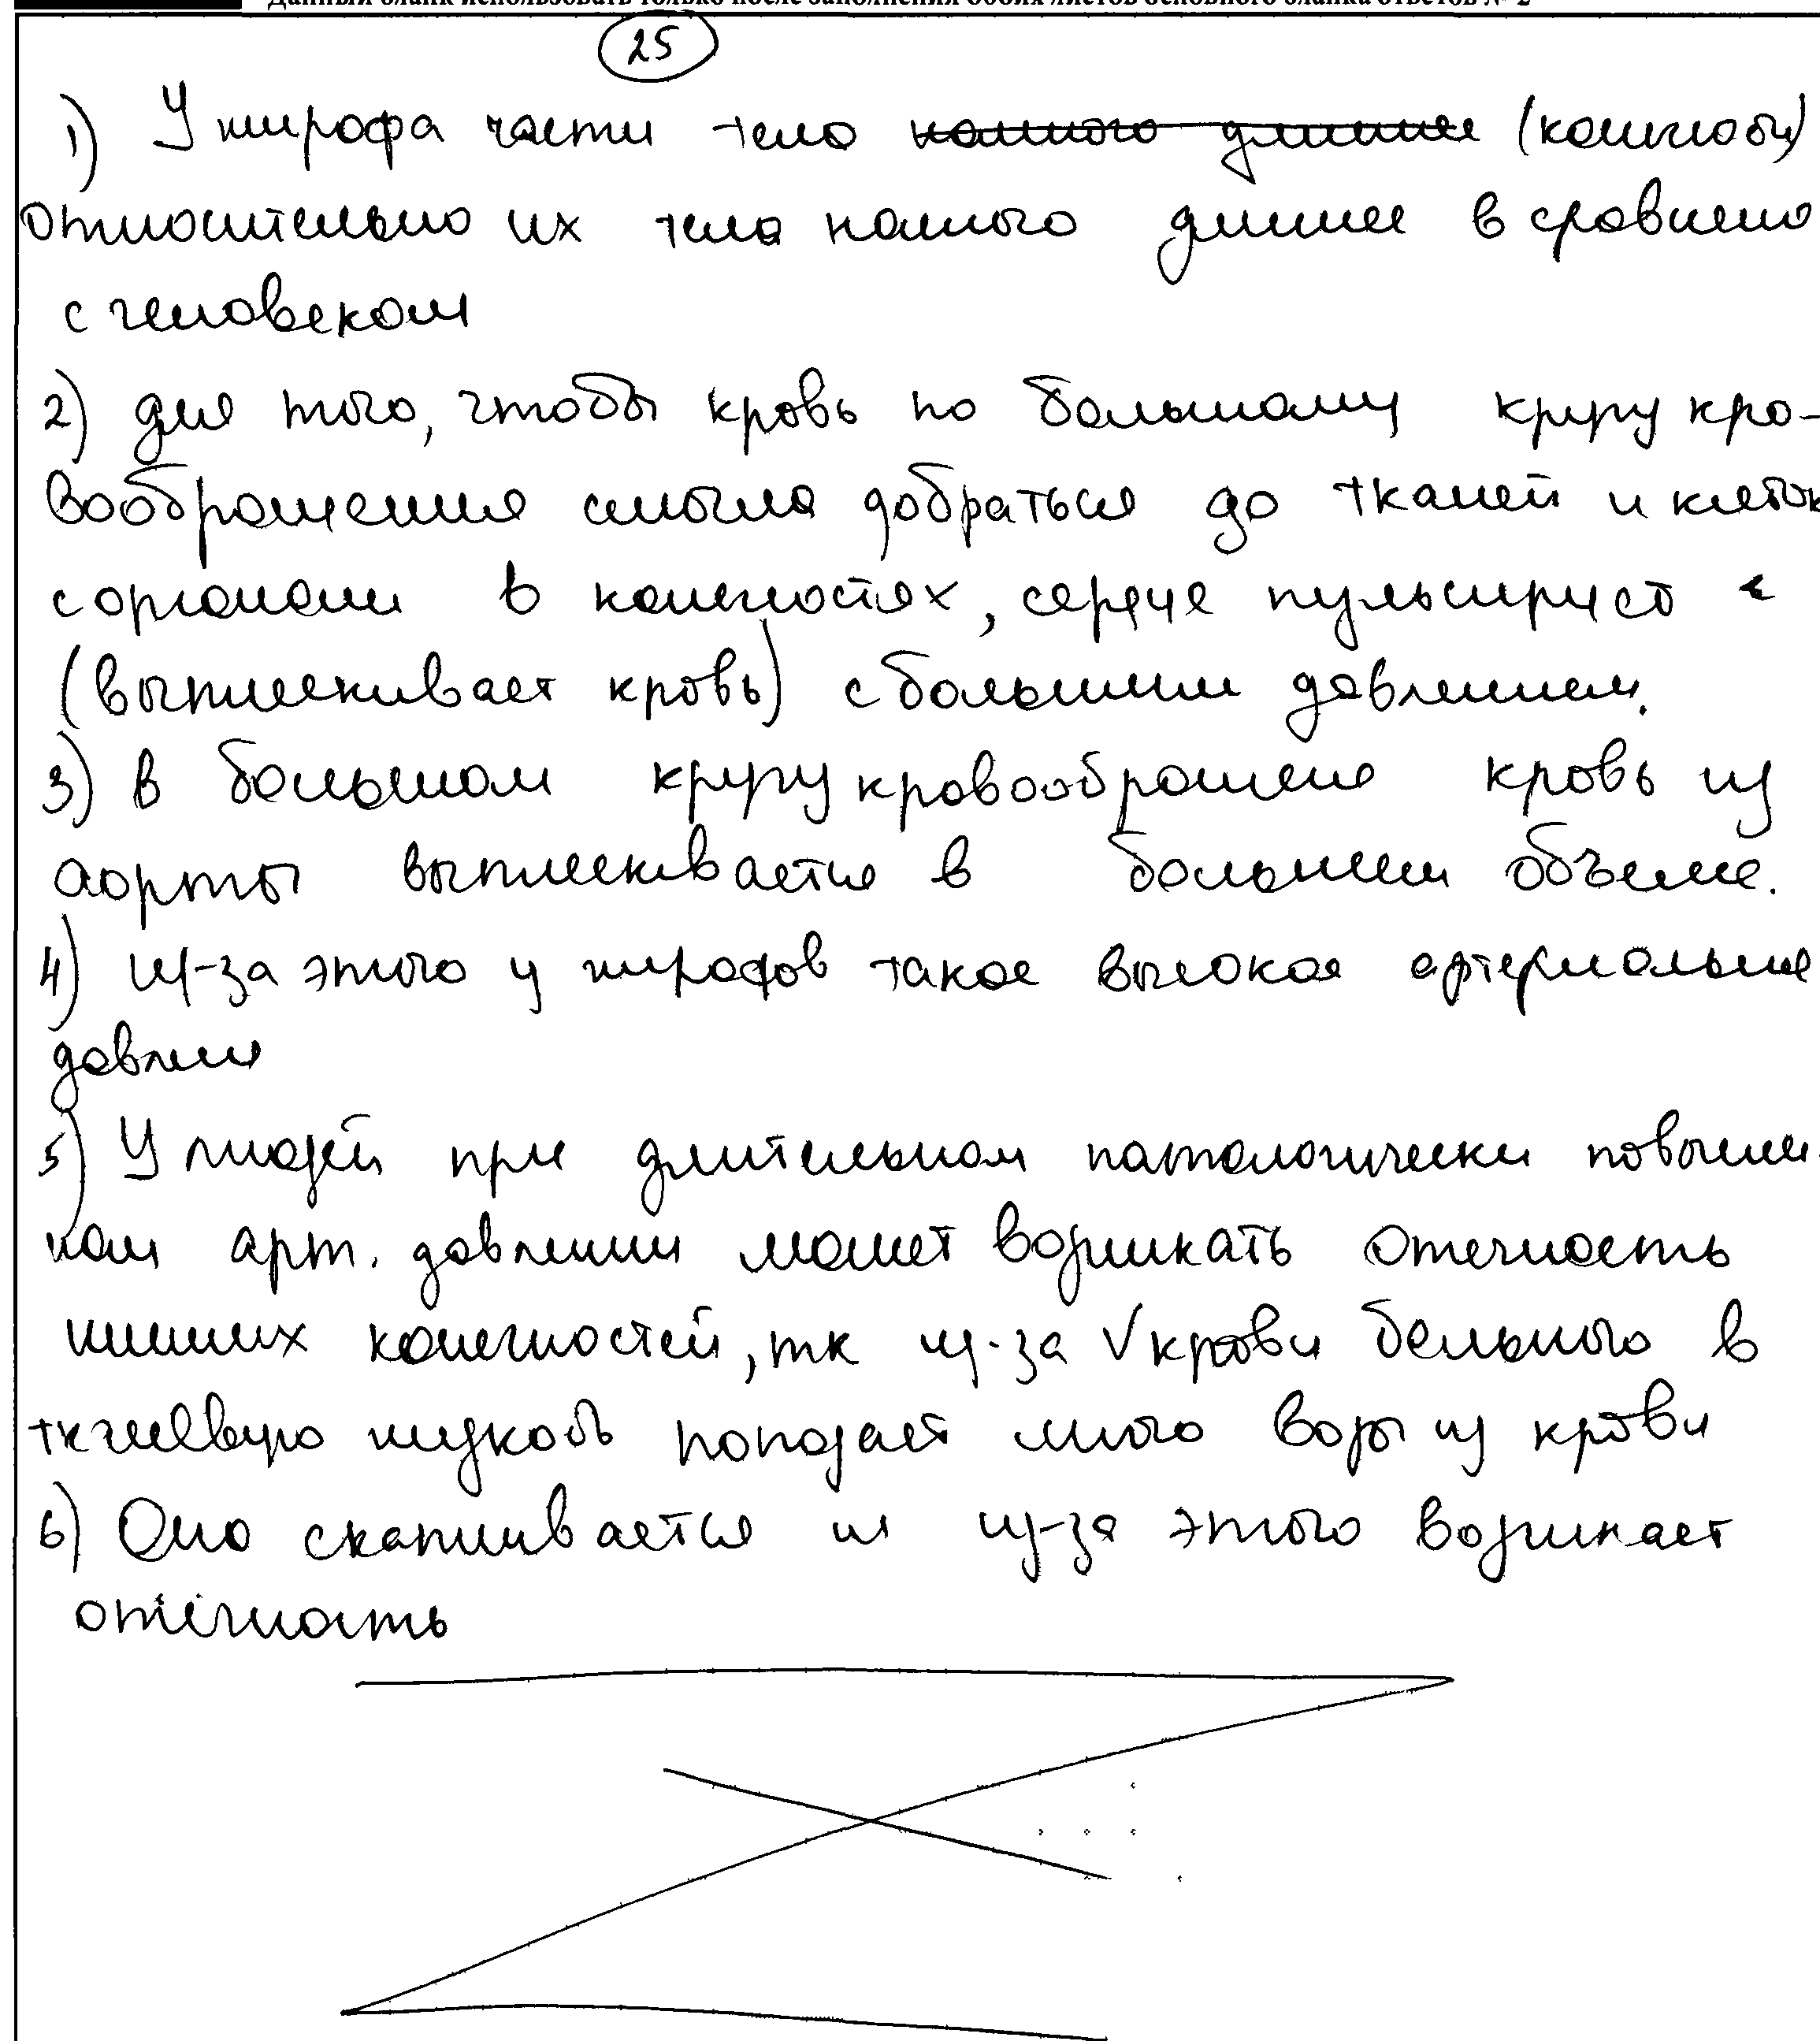 Данный бланк использовать только после заполнения обоих листов основного бланка ответов № 2
25
1) У жирафа части тела намного длиннее (конечности)
относительно их тела намного длинее в сравнено
с человеком
2) для того, чтобы кровь по большому кругу кро-
вообращения смогла добраться до тканей и клеток
с органами в конечностях, сердце пульсирует
(выплескивает кровь) с большим давлением.
3) в большом кругу кровообращене кровь из
аорты выплескивается в большем объеме.
4) из-за этого у жирафов такое высокое артериальне
давлеие
5) У людей при длительном патологически повышен-
ном арт. давлении может возникать отечность
нижних конечностей, тк из-за V крови больного в
жидкость попадает много воды из крови
6) Оно скапливается и из-за этого возникает
отечность